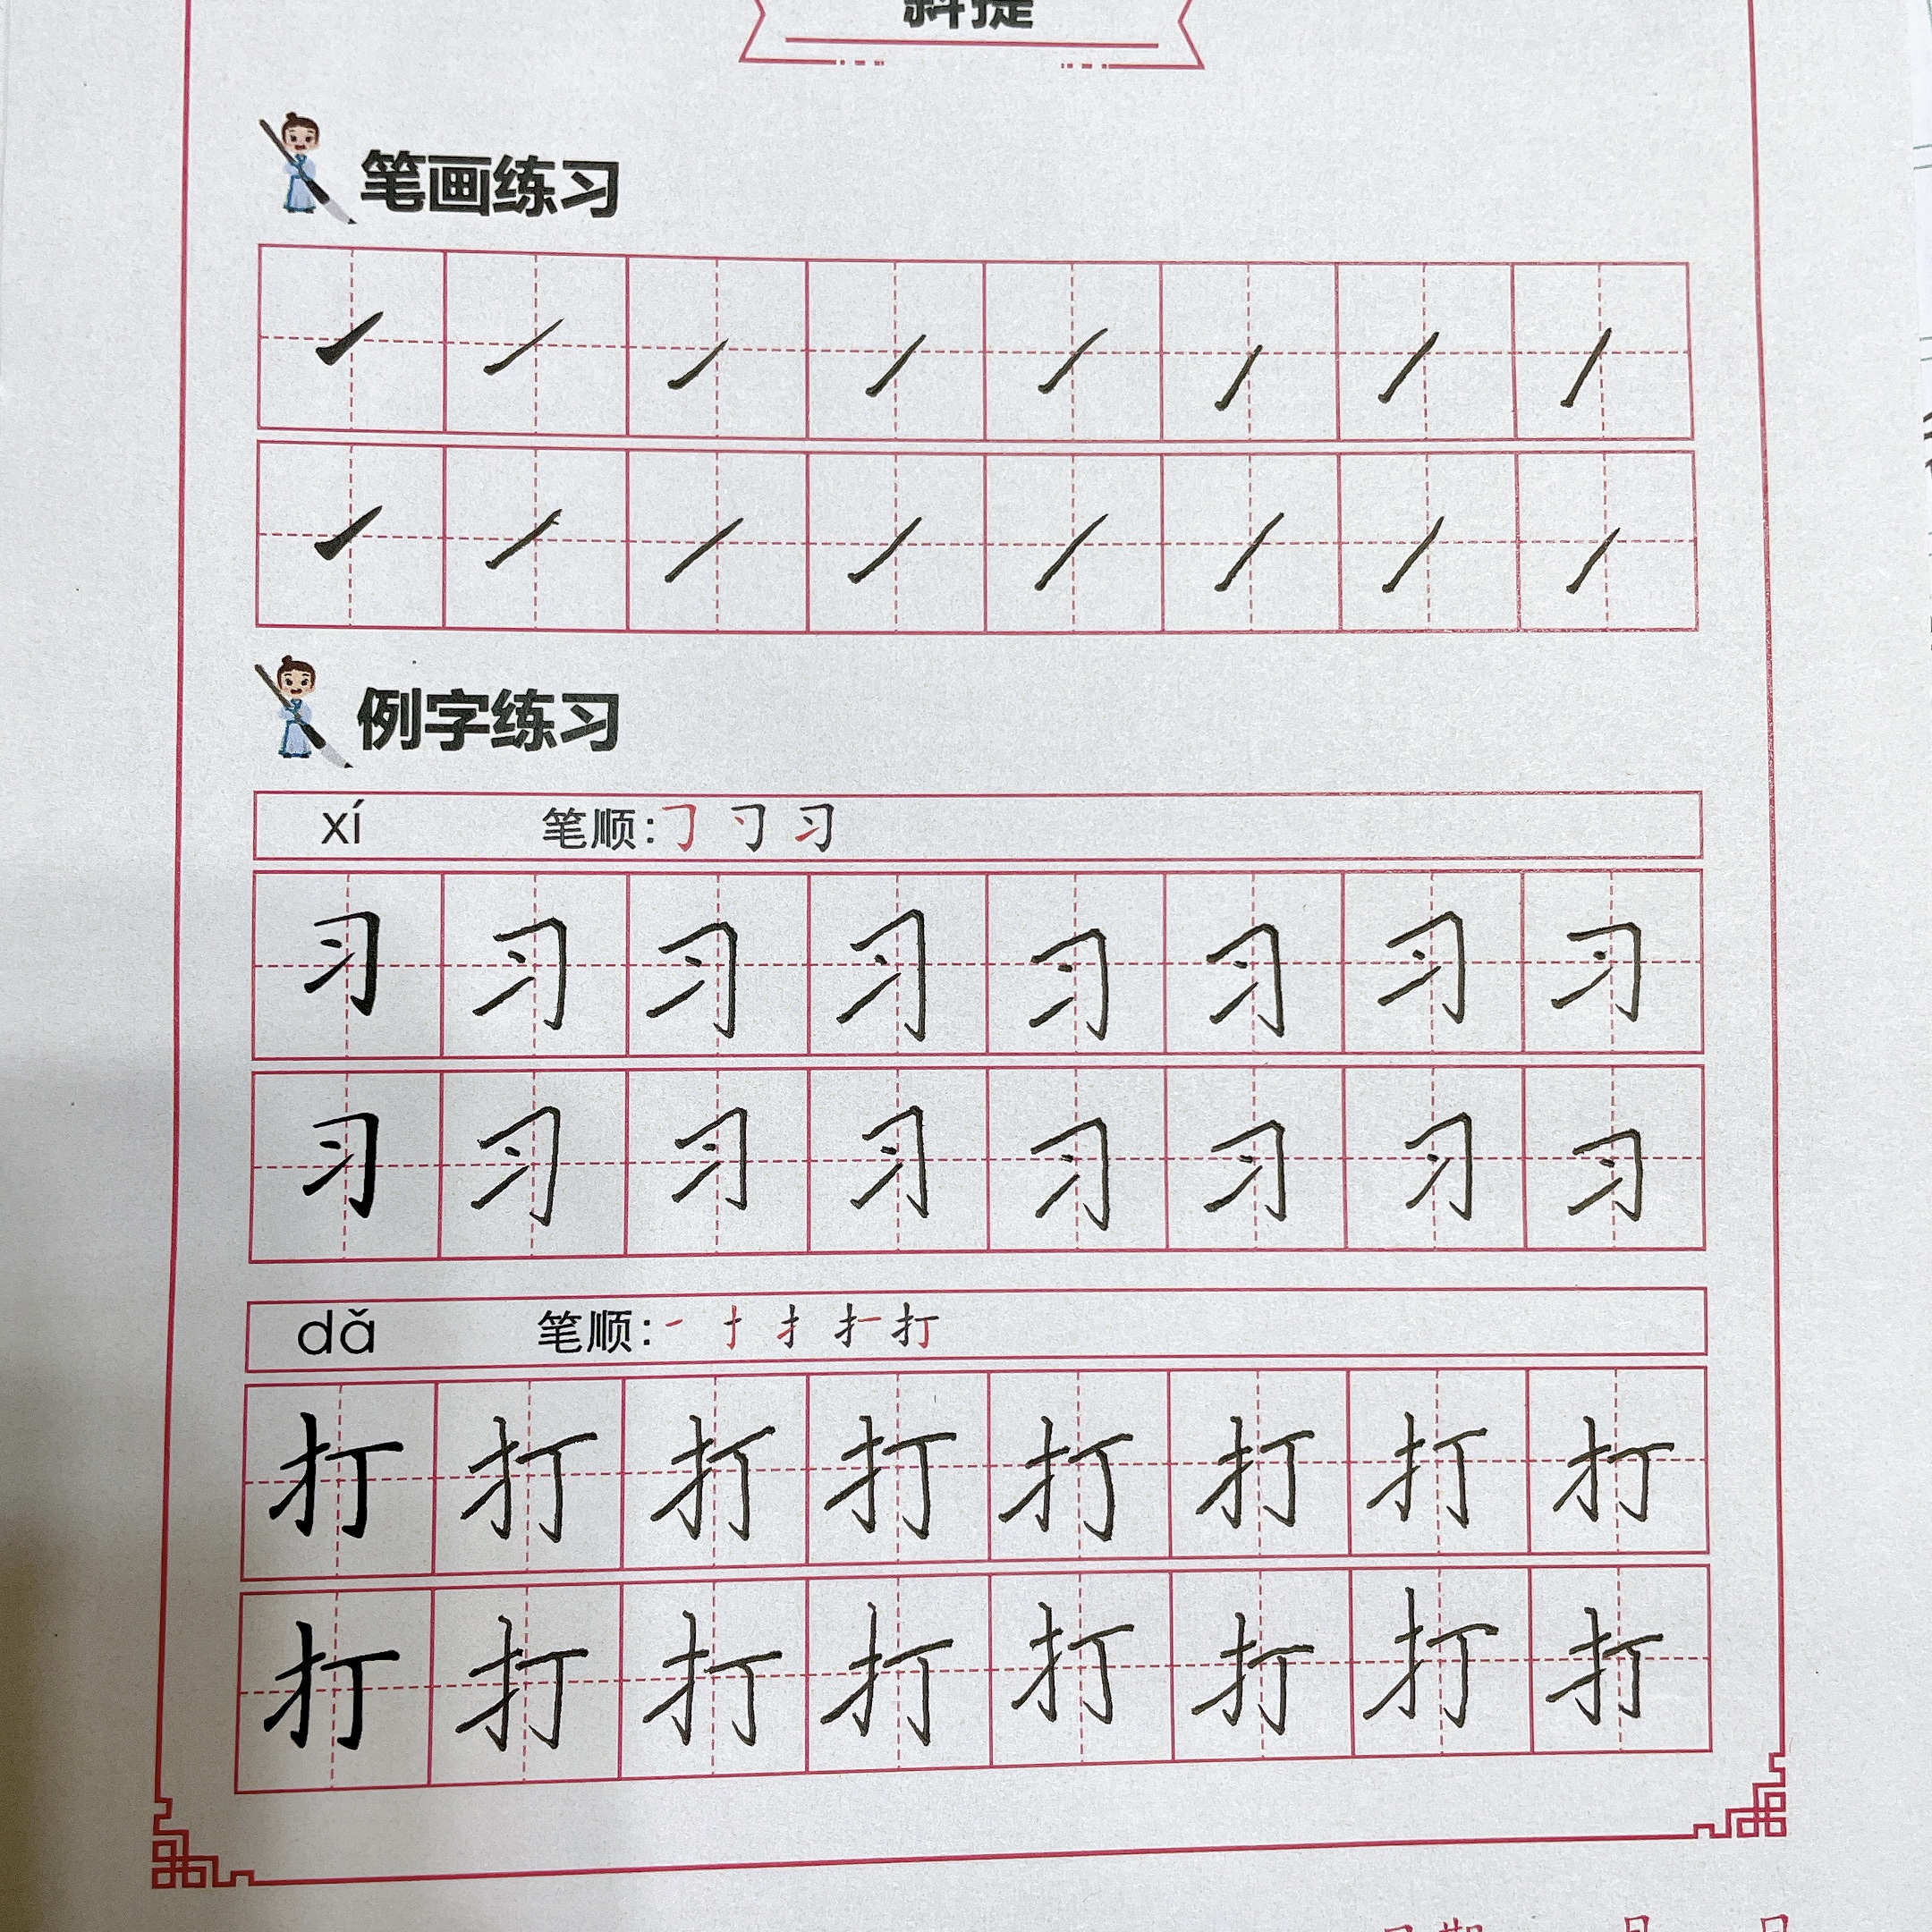 斜提
笔画练习
例字练习
xí 笔顺:㇆ 刁 习
习 习 习 习 习 习 习 习
习 习 习 习 习 习 习 习
dǎ 笔顺:一 扌 打
打 打 打 打 打 打 打 打
打 打 打 打 打 打 打 打